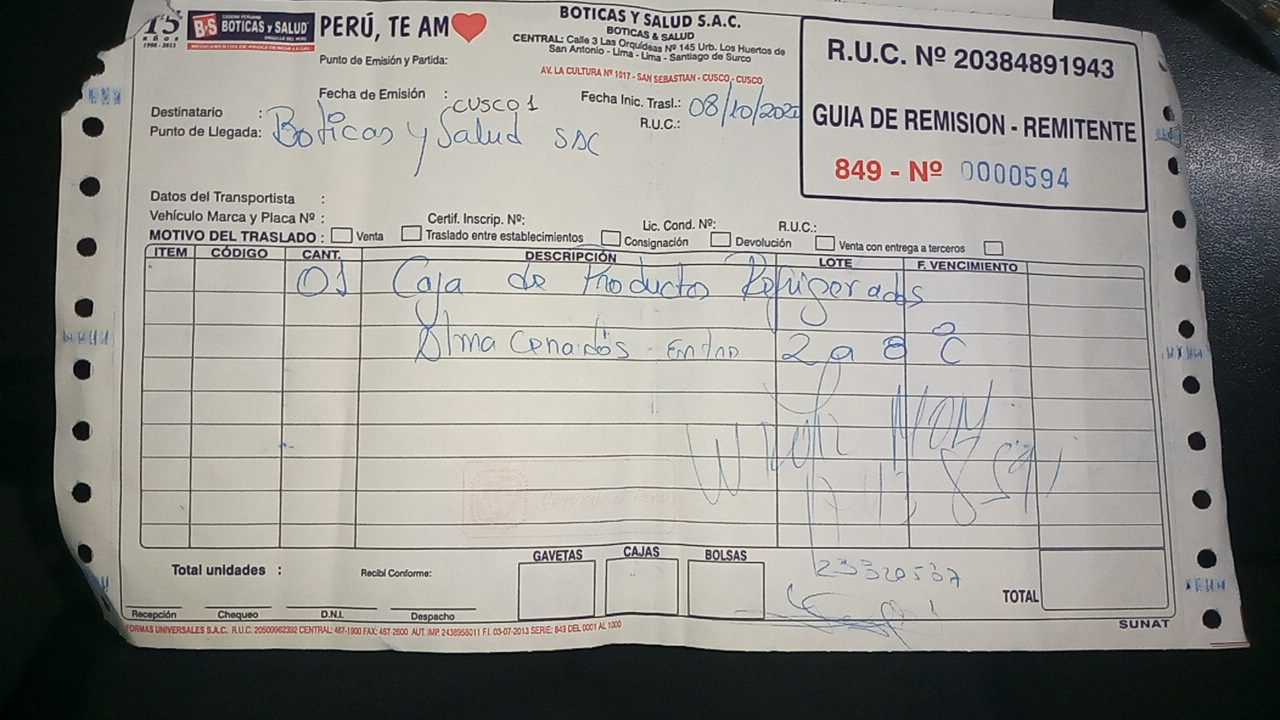 15 AÑOS 1998 - 2013
B&S CADENA PERUANA BOTICAS y SALUD ORGULLO DEL PERÚ
MEDICAMENTOS DE PROCEDENCIA LEGAL
PERÚ, TE AM
BOTICAS Y SALUD S.A.C.
BOTICAS & SALUD
CENTRAL: Calle 3 Las Orquídeas Nº 145 Urb. Los Huertos de
San Antonio - Lima - Lima - Santiago de Surco
AV. LA CULTURA Nº 1017 - SAN SEBASTIAN - CUSCO - CUSCO
R.U.C. Nº 20384891943
GUIA DE REMISION - REMITENTE
849 - Nº 0000594
Punto de Emisión y Partida:
Fecha de Emisión :
CUSCO 1
Fecha Inic. Trasl.: 08/10/202
R.U.C.:
Destinatario :
Punto de Llegada: Boticas y Salud SAC
Datos del Transportista :
Vehículo Marca y Placa Nº : Certif. Inscrip. Nº: Lic. Cond. Nº: R.U.C.:
MOTIVO DEL TRASLADO : Venta Traslado entre establecimientos Consignación Devolución Venta con entrega a terceros
ITEM CÓDIGO CANT. DESCRIPCIÓN LOTE F. VENCIMIENTO
01 Caja de Productos Refrigerados
Almacenados entre 2 a 8 °C
23320537
GAVETAS CAJAS BOLSAS
Total unidades : Recibí Conforme:
TOTAL
Recepción Chequeo D.N.I. Despacho
SUNAT
FORMAS UNIVERSALES S.A.C. R.U.C. 20509962392 CENTRAL: 467-1900 FAX: 467-2600 AUT. IMP. 2438958011 F.I. 03-07-2013 SERIE: 849 DEL 0001 AL 1000